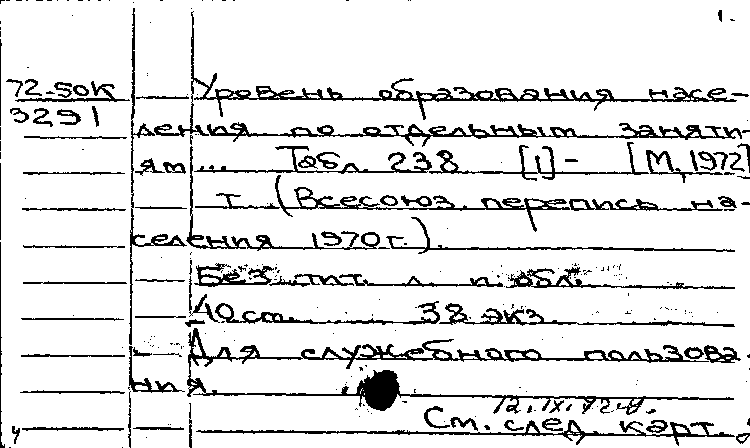 1.
72-50к
3291
Уровень образования насе-
ления по отдельным заняти-
ям... Табл. 238 [1]- [М, 1972]
т. (Всесоюз. перепись на-
селения 1970г.).
Без тит. л. и обл.
40см. 38 экз
Для служебного пользова-
ния.
12.IX.72
См. след. карт.